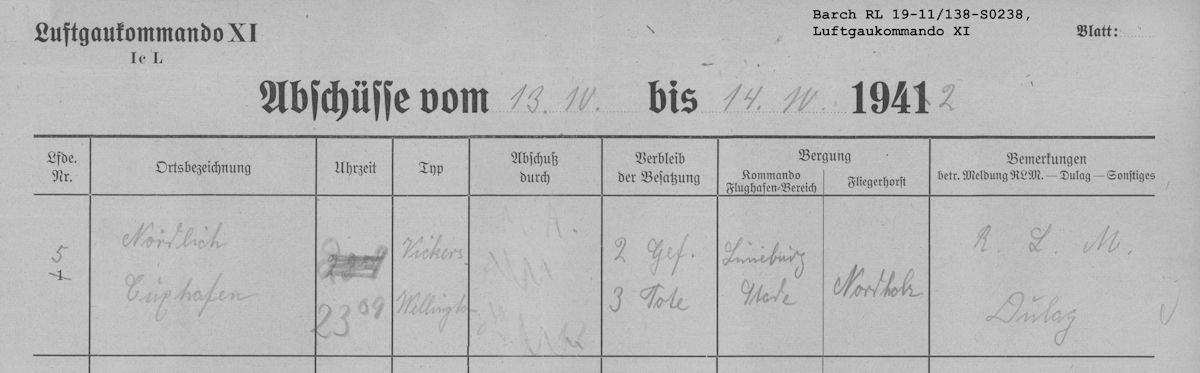 Barch RL 19-11/138-S0238,
Luftgaukommando XI
Luftgaukommando XI
Blatt:
Ic L
Abschüsse vom 13. IV. bis 14. IV. 1941 2
Lfde. Nr.
Ortsbezeichnung
Uhrzeit
Typ
Abschuß durch
Verbleib der Besatzung
Bergung
Kommando Flughafen-Bereich
Fliegerhorst
Bemerkungen
betr. Meldung RLM. — Dulag — Sonstiges
5
1
Nördlich
Cuxhafen
23 09
Vickers
Wellington
2 Gef.
3 Tote
Lüneburg
Stade
Nordholz
R. L. M.
Dulag